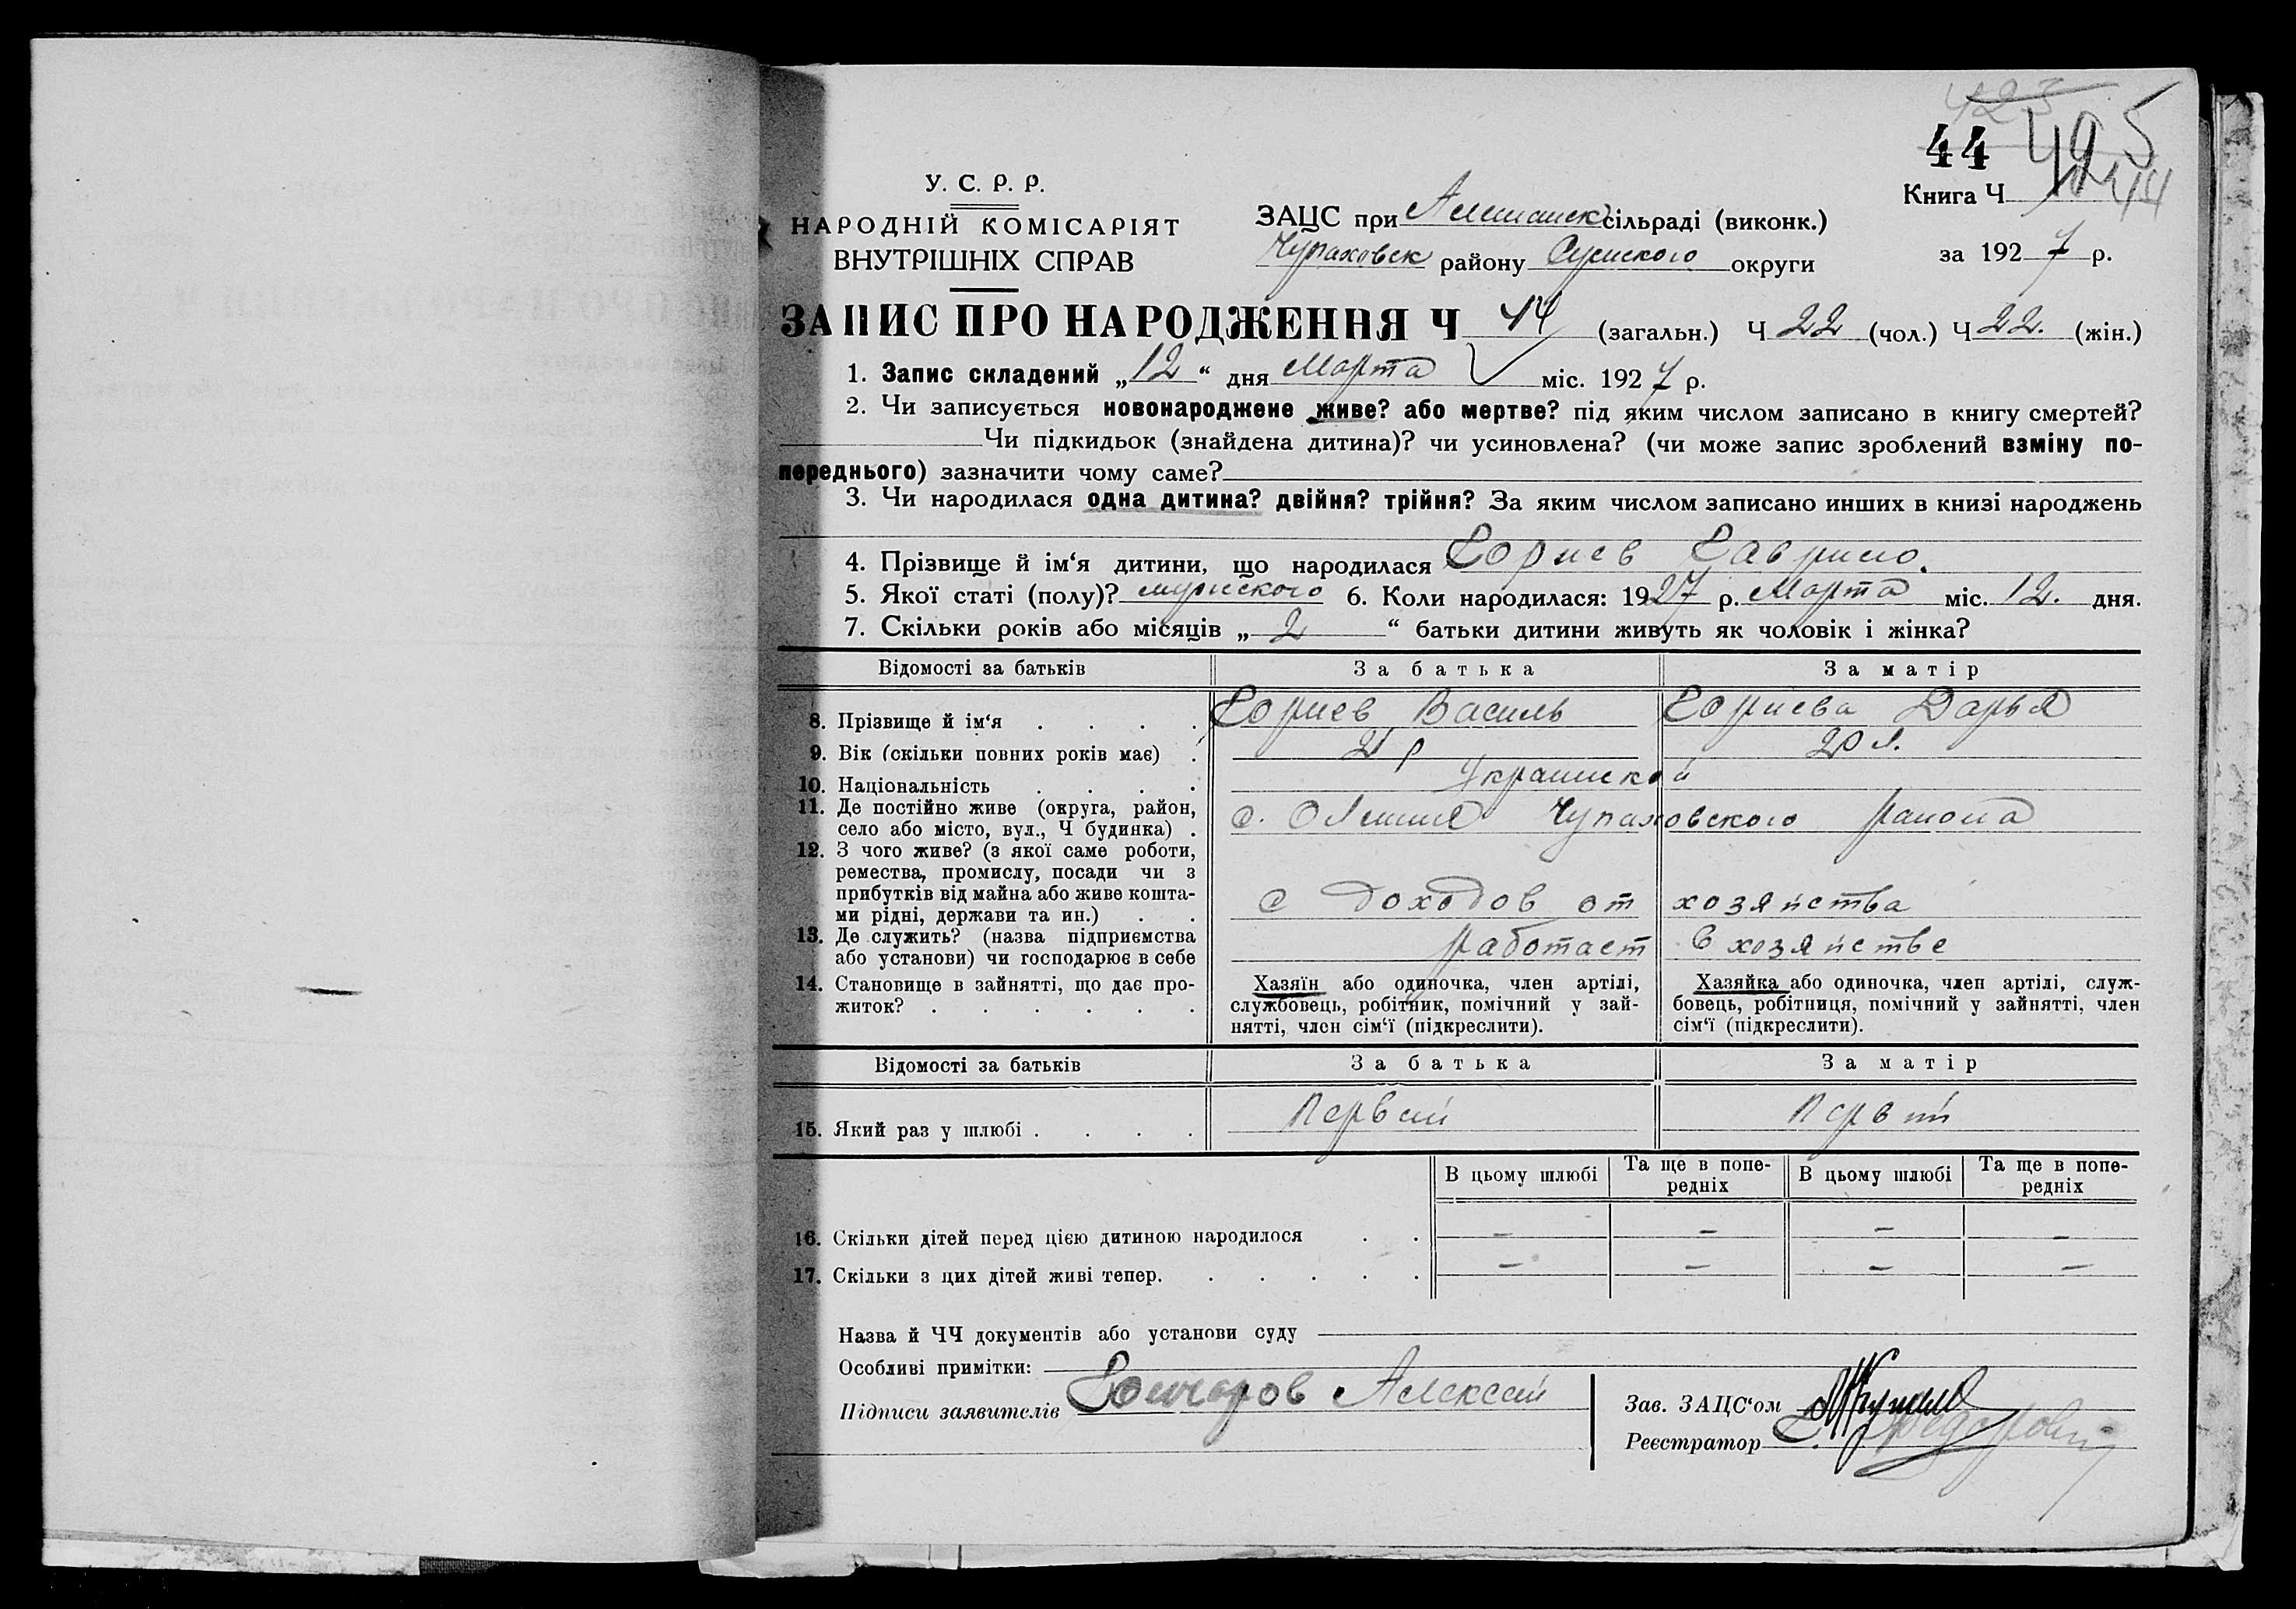 423
44 495
У. С. Р. Р.
Книга Ч 44
НАРОДНІЙ КОМІСАРІЯТ
ВНУТРІШНІХ СПРАВ
ЗАЦС при сільраді (виконк.)
Чупаховск району Сумского округи
за 1927 р.
ЗАПИС ПРО НАРОДЖЕННЯ Ч 44 (загальн.) Ч 22 (чол.) Ч 22. (жін.)
1. Запис складений „12“ дня Марта міс. 1927 р.
2. Чи записується новонароджене живе? або мертве? під яким числом записано в книгу смертей?
Чи підкидьок (знайдена дитина)? чи усиновлена? (чи може запис зроблений взміну по-
переднього) зазначити чому саме?
3. Чи народилася одна дитина? двійня? трійня? За яким числом записано инших в книзі народжень
4. Прізвище й ім‘я дитини, що народилася Гаврило.
5. Якої статі (полу)? мужского 6. Коли народилася: 1927 р. Марта міс. 12. дня.
7. Скільки років або місяців „2“ батьки дитини живуть як чоловік і жінка?
Відомості за батьків За батька За матір
8. Прізвище й ім‘я . . . . Василь Дарья
9. Вік (скільки повних років має) . 21 р 20 л.
10. Національність . . . . Украинской
11. Де постійно живе (округа, район,
село або місто, вул., Ч будинка) . с. Олешня Чупаховского района
12. З чого живе? (з якої саме роботи,
ремества, промислу, посади чи з
прибутків від майна або живе кошта-
ми рідні, держави та ин.) . . с доходов от хозяйства
13. Де служить? (назва підприємства
або установи) чи господарює в себе работает в хозяйстве
14. Становище в зайнятті, що дає про-
житок? . . . . . .
Хазяїн або одиночка, член артілі,
службовець, робітник, помічний у зай-
нятті, член сім‘ї (підкреслити).
Хазяйка або одиночка, член артілі, служ-
бовець, робітниця, помічний у зайнятті, член
сім‘ї (підкреслити).
Відомості за батьків За батька За матір
15. Який раз у шлюбі . . . . Первый Первый
В цьому шлюбі Та ще в попе-
редніх В цьому шлюбі Та ще в попе-
редніх
16. Скільки дітей перед цією дитиною народилося . . – – – –
17. Скільки з цих дітей живі тепер. . . . . . – – – –
Назва й ЧЧ документів або установи суду
Особливі примітки:
Підписи заявителів Гончаров Алексей
Зав. ЗАЦС‘ом
Реєстратор